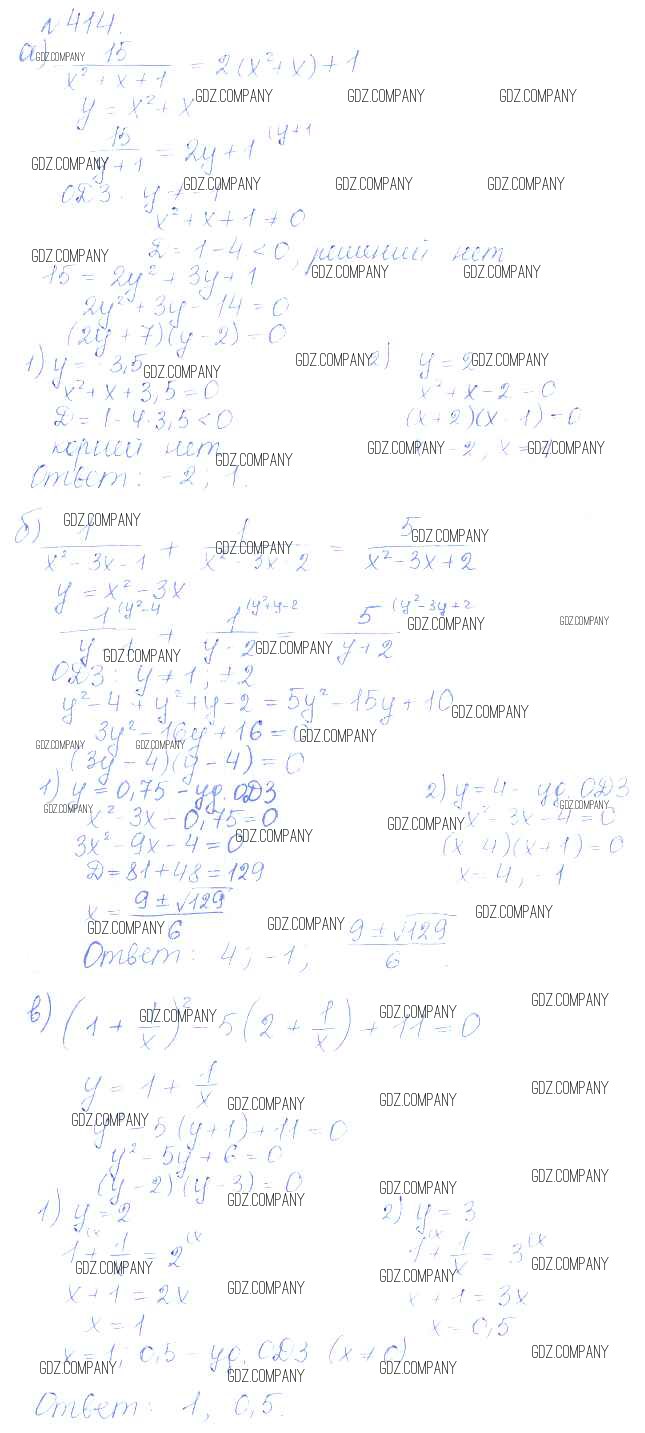 №414.
а) 15/(x² + x + 1) = 2(x² + x) + 1
y = x² + x
15/(y + 1) = 2y + 1 (y+1
ОДЗ: y ≠ -1
x² + x + 1 ≠ 0
D = 1 - 4 < 0, решений нет
15 = 2y² + 3y + 1
2y² + 3y - 14 = 0
(2y + 7)(y - 2) = 0
1) y = -3,5
x² + x + 3,5 = 0
D = 1 - 4·3,5 < 0
корней нет
2) y = 2
x² + x - 2 = 0
(x + 2)(x - 1) = 0
x = -2, x = 1
Ответ: -2; 1.
б) 1/(x² - 3x - 1) + 1/(x² - 3x - 2) = 5/(x² - 3x + 2)
y = x² - 3x
1/(y - 1) (y²-4 + 1/(y - 2) (y²+y-2 = 5/(y + 2) (y²-3y+2
ОДЗ: y ≠ 1; ±2
y² - 4 + y² + y - 2 = 5y² - 15y + 10
3y² - 16y + 16 = 0
(3y - 4)(y - 4) = 0
1) y = 0,75 - уд. ОДЗ
x² - 3x - 0,75 = 0
3x² - 9x - 4 = 0
D = 81 + 48 = 129
x = (9 ± √129)/6
2) y = 4 - уд. ОДЗ
x² - 3x - 4 = 0
(x - 4)(x + 1) = 0
x = 4, -1
Ответ: 4; -1; (9 ± √129)/6.
в) (1 + 1/x)² - 5(2 + 1/x) + 11 = 0
y = 1 + 1/x
y² - 5(y + 1) + 11 = 0
y² - 5y + 6 = 0
(y - 2)(y - 3) = 0
1) y = 2
1 (x + 1/x = 2 (x
x + 1 = 2x
x = 1
2) y = 3
1 (x + 1/x = 3 (x
x + 1 = 3x
x = 0,5
x = 1; 0,5 - уд. ОДЗ (x ≠ 0)
Ответ: 1; 0,5.
GDZ.COMPANY